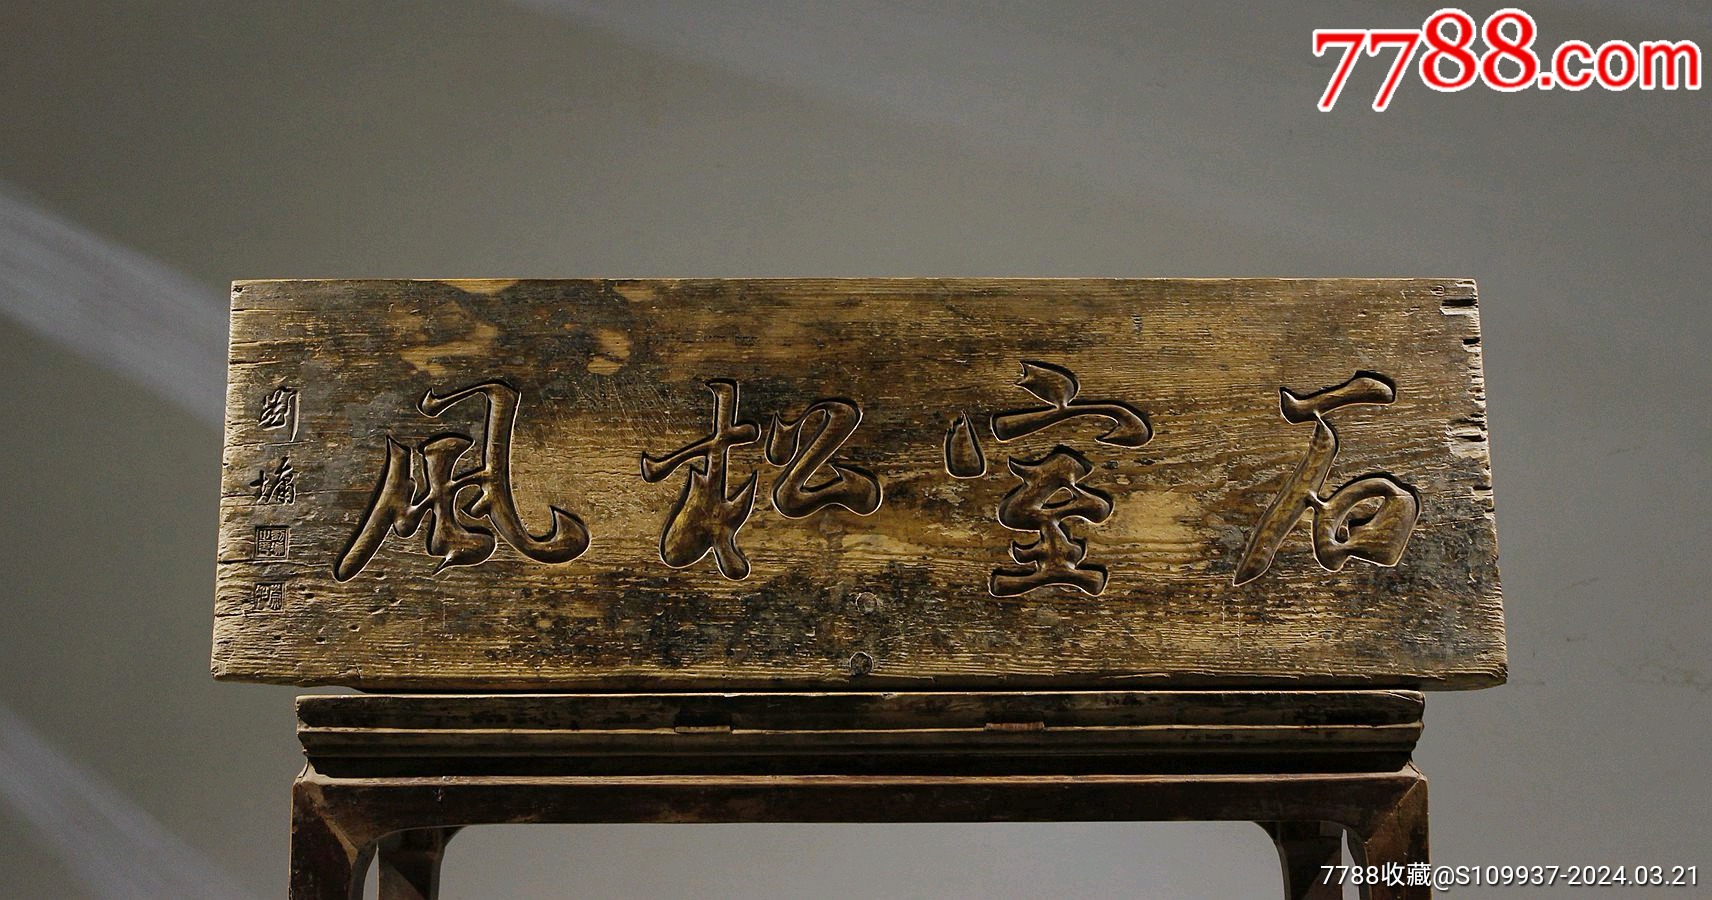 7788.com
石室松风
刘墉
7788收藏@S109937-2024.03.21